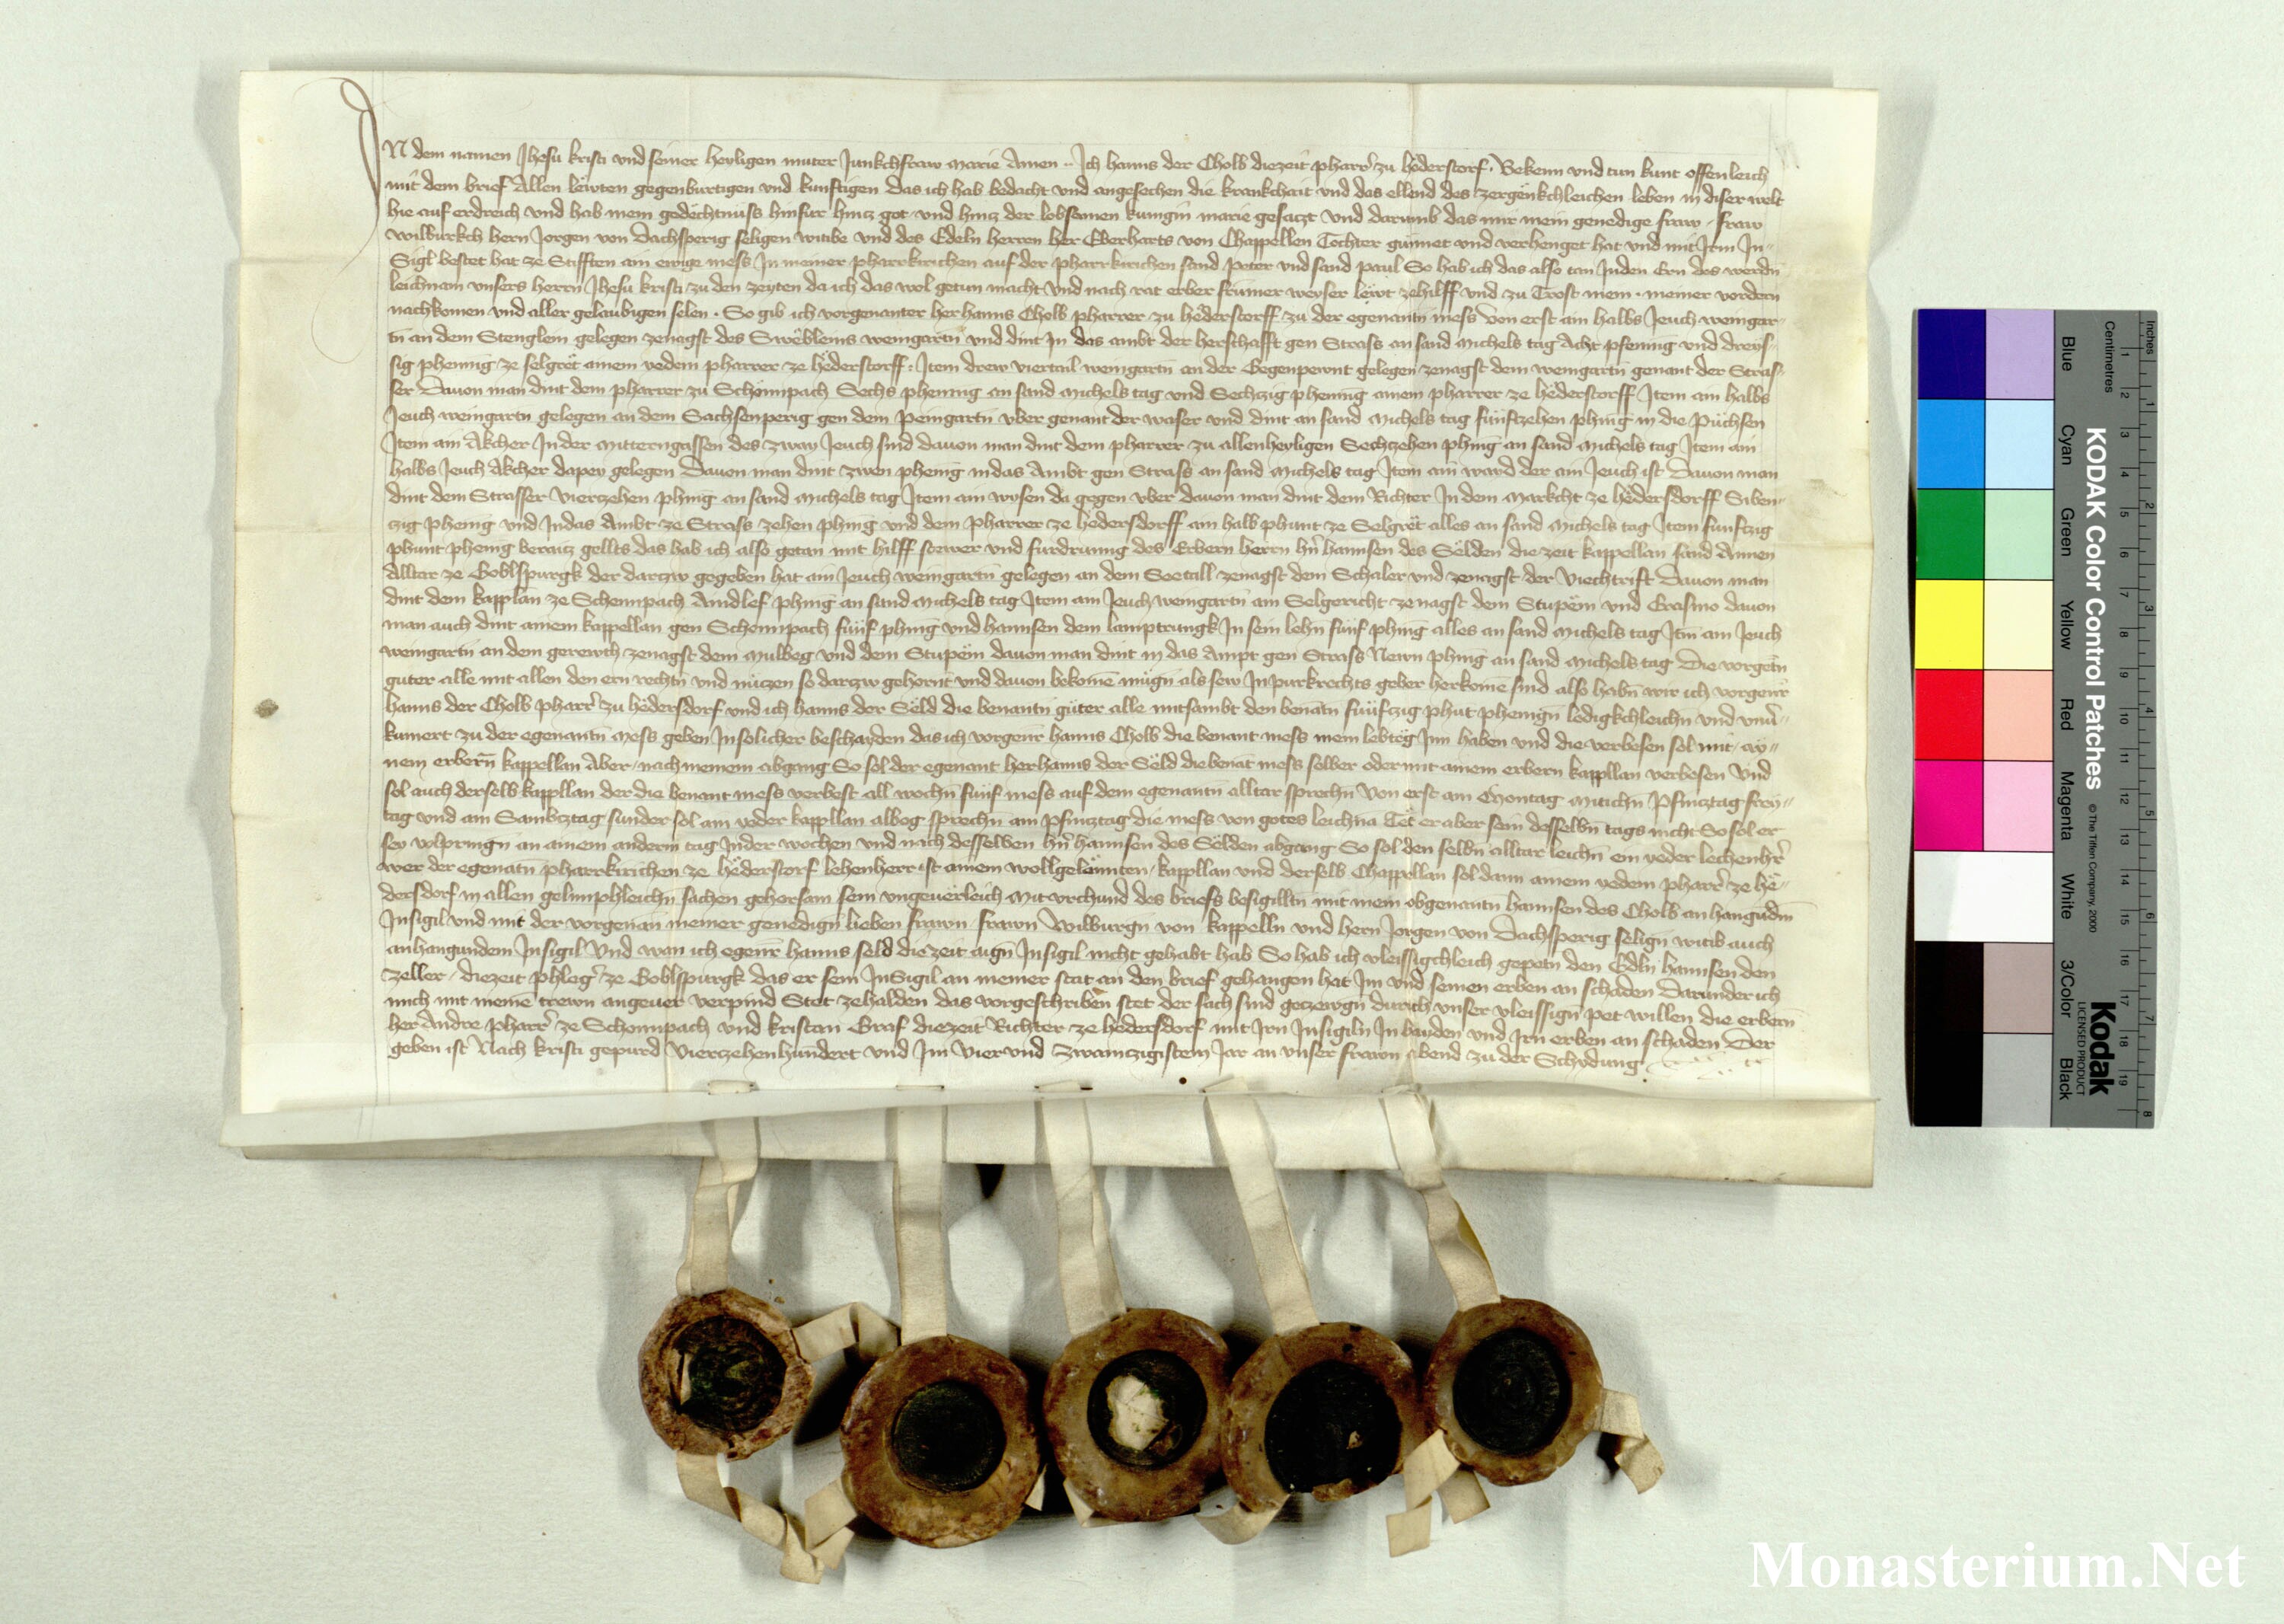 IN dem namen Jhesu kristi vnd seiner heyligen muter Junkchfraw Marie Amen Ich hanns der Cholb diezeit pharrer zu hederstorf Bekenn vnd tun kunt offenleich
mit dem brief Allen lewten gegenburtigen vnd kunftigen das ich hab bedacht vnd angesechen die krankchait vnd das ellend des zergenkchleichen leben in diser welt
hie auf erdreich vnd hab mein gedechtnuss hinfur hincz got vnd hincz der lobsamen kunigin marie gesaczt Vnd darumb das mir mein genedige fraw fraw
wilbirkch hern Jorgen von Dachsperig seligen witibe vnd des Edeln herren her Eberharts von Chappellen Tochter gunnet vnd verhenget hat vnd mit Irm In-
Sigl bestet hat ze Stifften ain ewige mess In meiner pharrkirichen auf der pharrkirichen sand peter vnd sand paul So hab ich das also tan Inden Ern des werdn
leichnam vnsers herrn Jhesu kristi zu den zeyten da ich das wol getun macht Vnd nach rat erber frumer weyser lewt zehilff vnd zu Trost mein meiner vordern
nachkomen vnd aller gelaubigen selen So gib ich vorgenanter her hanns Cholb pharrer zu hederstorff zu der egenantn mess Von erst ain halbs Jeuch weingar-
tn an dem Stenglein gelegen zenagst des Swebleins weingartn vnd dint In das ambt der herschafft gen Strass an sand Michels tag Acht pfennig vnd dreys-
sig phennig ze selgret ainem yedem pharrer ze hederstorff Item drew viertail weingartn an der Gegenpewnt gelegen zenagst dem weingartn genant der Stras-
ser Dauon man dint dem pharrer zu Schonnpach Sechs phennig an sand Michels tag vnd Sechzig phennig ainem pharrer ze hederstorff Item ain halbs
Jeuch weingartn gelegen an dem Sachsenperig gen dem Peingartn vber genant der waser vnd dint an sand Michels tag funfczehen phing in die Puchsen
Item ain Akcher In der Mitterngassen des zway Jeuch sind dauon man dint dem pharrer zu allenheyligen Sechzehen phing an sand Michels tag Item ain
halbs Jeuch Akcher dapey gelegen Dauon man dint zwen phenig indas Ambt gen Strass an sand Michels tag Item ain ward der ain Jeuch ist Dauon man
dint dem Strasser Vierczehen phing an sand Michels tag Item ain wysen da gegen vber dauon man dint dem Richter In dem Markcht ze hedersdorff Siben-
czig phenig vnd Indas Ambt ze Strass zehen phing vnd dem pharrer ze hedersdorff ain halb phunt ze Selgret alles an sand Michels tag Item funfczig
phunt phenig beraicz gellts das hab ich also getan mit hilff stewer vnd furdrunng des Erbern herrn hern hannsen des Selden die zeit kappellan sand Annen
Alltar ze Goblspurgk der darczw gegeben hat ain Jeuch weingartn gelegen an dem Seetall zenagst dem Schaler vnd zenagst der Viechtrift Dauon man
dint dem kapplan ze Schonnpach Aindlef phing an sand Michels tag Item ain Jeuch weingartn am Selgericht zenagst dem Stupein vnd Erasmo dauon
man auch dint ainem kappellan gen Schonnpach funf phing vnd hannsen dem lamptrungk In sein lehn funf phing alles an sand Michels tag Itm ain Jeuch
weingartn an dem gerewth zenagst dem Mulbeg vnd dem Stupein dauon man dint in das Ampt gen Strass Newn phing an sand Michels tag Die vorgetn
guter alle mit allen den ern rechtn vnd nuczen so darczw gehornt vnd dauon bekome mugn als sew In purkrechts geber herkome sind also habn wir ich vorgenr
hanns der Cholb pharrer zu hedersdorf vnd ich hanns der Seld die benantn guter alle mitsambt den benatn funfczig phut phenign ledigkchleichn vnd vnu-
kumert zu der egenantn Mess geben Insolicher beschayden das ich vorgenr hanns Cholb die benant mess mein lebteg Inn haben vnd die verbesen sol mit ay-
nem erbern kappellan Aber nach meinem abgang So sol der egenant her hanns der Seld die benat mess selber oder mit ainem erbern kappllan verbesen Vnd
sol auch derselb kappllan der die benant mess verbest all wochn funf mess auf dem egenantn alltar sprechn Von erst am Montag Mitichn Pfincztag frey-
tag vnd am Sambcztag sunder sol ain yeder kappllan albeg sprechn am Pfincztag die mess von gotes leichna Tet er aber sein desselbn tags nicht So sol er
sey volpringn an ainem anderm tag Inder wochen vnd nach desselben hern hannsen des Selden abgang So sol den selbn alltar leichn ein yeder lechenher
wer der egenatn pharrkirichen ze hederstorf lehenherr ist ainem wollgelaunten kappllan vnd derselb Chappellan sol dann ainem yedem pharrer ze he-
dersdorf in allen gelimphleichn sachen gehorsam sein vngeuerleich Mit vrchund des briefs besigilltn mit mein obgenantn hannsen des Cholb an hangudm
Insigil vnd mit der vorgenan meiner genedign lieben frawn frawn Wilburgn von kappelln vnd hern Jorgen von Dachsperig selign witib auch
anhangundem Insigil Vnd wan ich egenr hanns seld die zeit aign Insigil nicht gehabt hab So hab ich vleissigchleich gepetn den Edln hannsen den
zeller diezeit phleger ze Goblspurgk das er sein InSigil an meiner stat an den brief gehangen hat Im vnd seinen erben an schaden Darunder ich
mich mit meine trewn angeuer verpind Stet zehalden das vorgeschriben stet der sach sind geczewgn durich vnser vleissign pet willen die erbern
her Andre pharrer ze Schonnpach vnd kristan Graf diezeit Richter ze hedersdorf mit Irn Insigiln In bayden vnd Irn erben an schaden Der
geben ist Nach kristi gepurd Vierczehenhundert vnd Im Viervnd zwainczigistem Jar an vnser frawn abend zu der Schydung
KODAK Color Control Patches
© The Tiffen Company, 2000
Kodak
LICENSED PRODUCT
Inches
Centimetres
Blue Cyan Green Yellow Red Magenta White 3/Color Black
1 2 3 4 5 6 7 8 9 10 11 12 13 14 15 16 17 18 19
1 2 3 4 5 6 7 8
Monasterium.Net